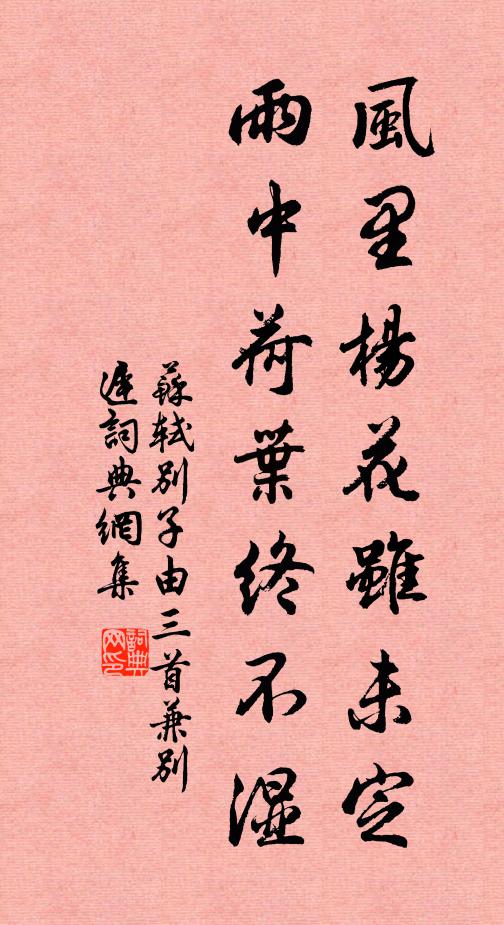 風里楊花雖未定
雨中荷葉終不濕
蘇軾別子由三首兼別
遲詞典網集
詞典
网印